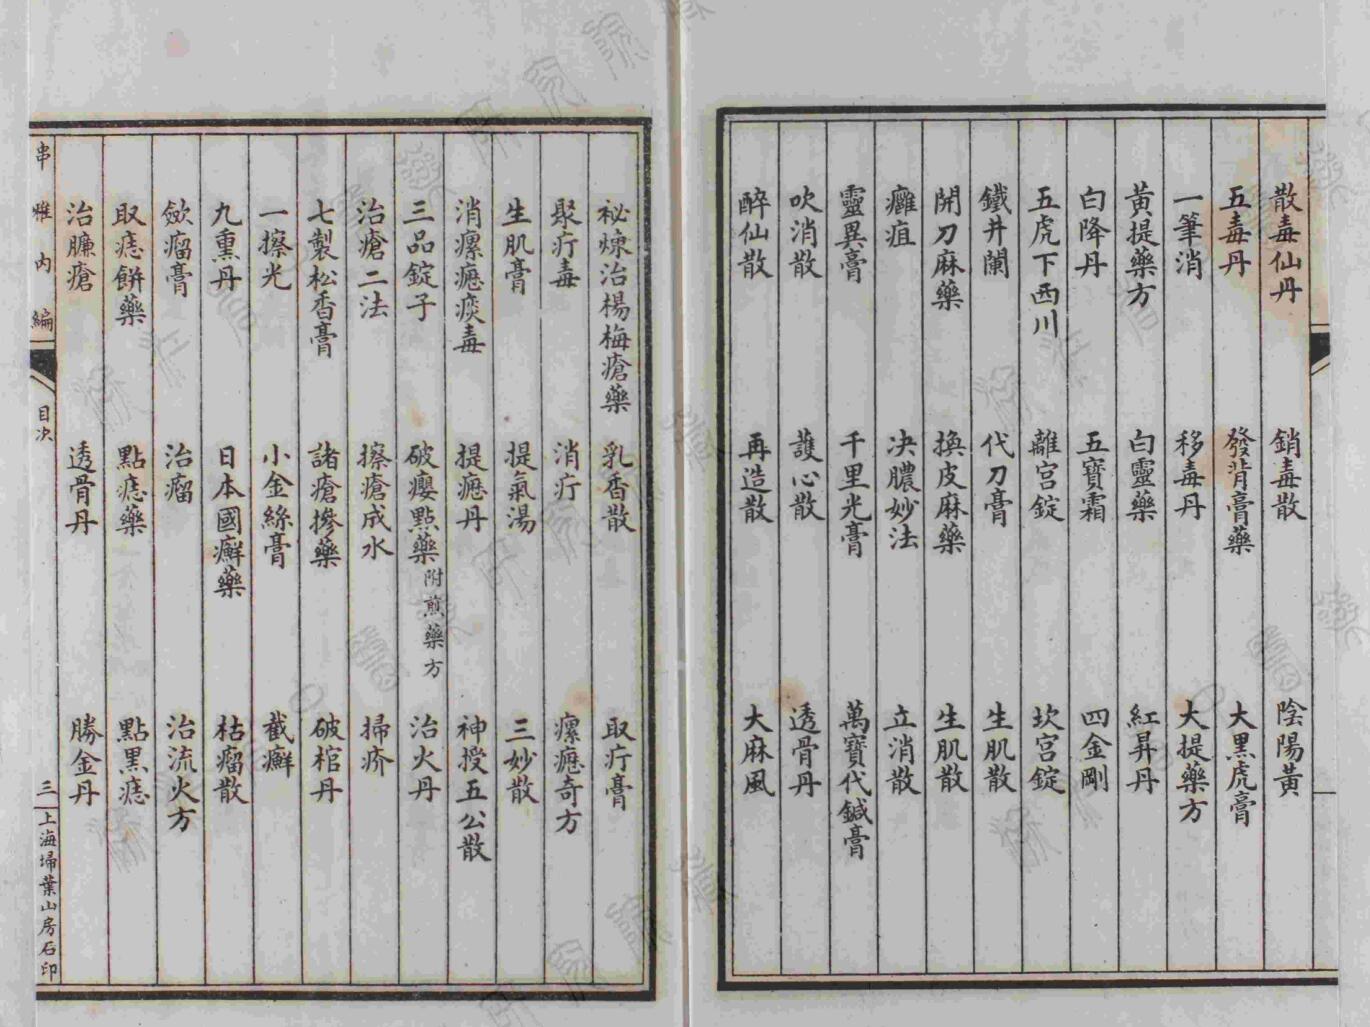 散毒仙丹　銷毒散　陰陽黃
五毒丹　發背膏藥　大黑虎膏
一筆消　移毒丹　大提藥方
黃提藥方　白靈藥　紅昇丹
白降丹　五寶霜　四金剛
五虎下西川　離宮錠　坎宮錠
鐵井闌　代刀膏　生肌散
開刀麻藥　換皮麻藥　生肌散
癰疽　决膿妙法　立消散
靈異膏　千里光膏　萬寶代鍼膏
吹消散　護心散　透骨丹
醉仙散　再造散　大麻風
祕煉治楊梅瘡藥　乳香散　取疔膏
聚疔毒　消疔　瘰癧奇方
生肌膏　提氣湯　三妙散
消瘰癧痰毒　提癧丹　神授五公散
三品錠子　破癭點藥附煎藥方　治火丹
治瘡二法　擦瘡成水　掃疥
七製松香膏　諸瘡摻藥　破棺丹
一擦光　小金絲膏　截癬
九熏丹　日本國癬藥　枯瘤散
斂瘤膏　治瘤　治流火方
取痣餅藥　點痣藥　點黑痣
治臁瘡　透骨丹　勝金丹
串雅內編　目次　三　上海埽葉山房石印